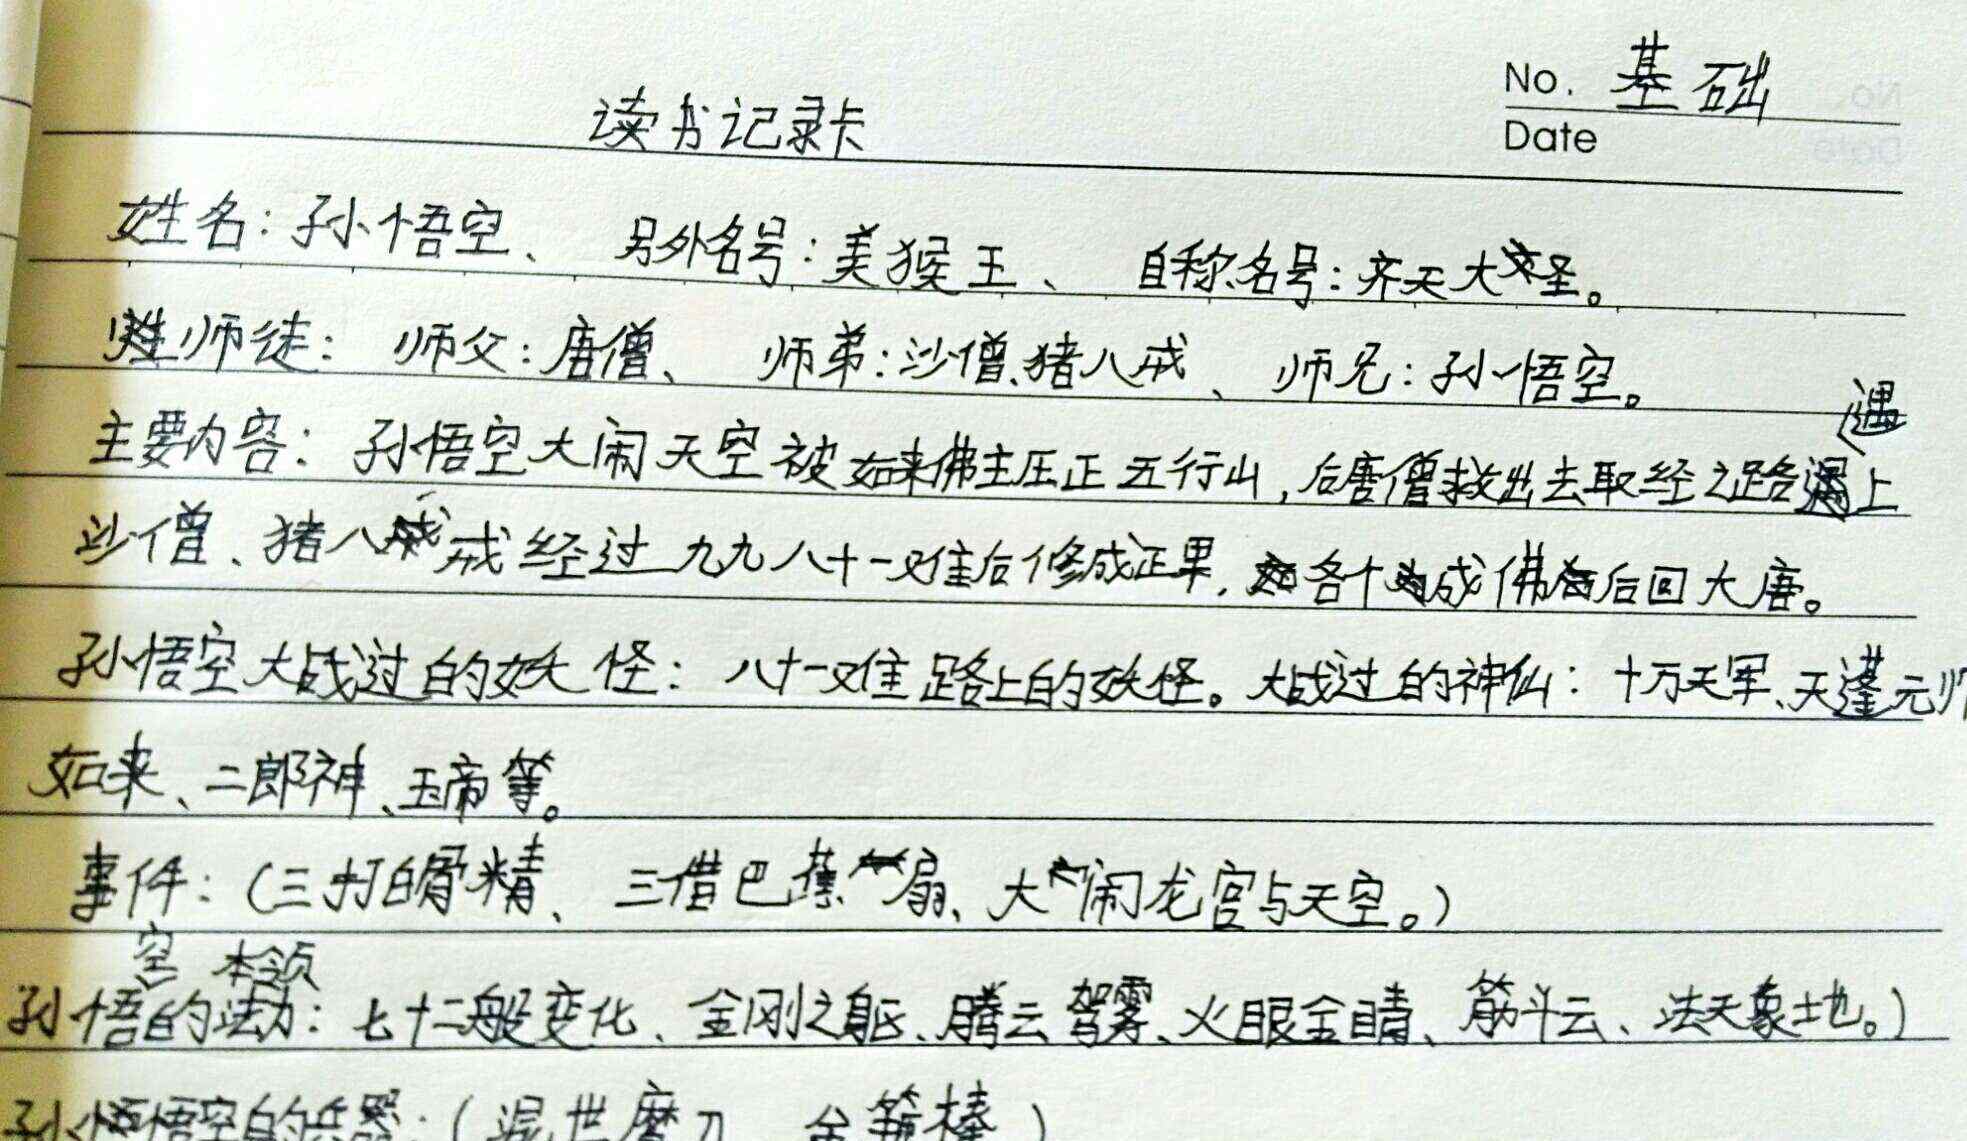 No. 基础
Date
读书记录卡
姓名：孙悟空、 另外名号：美猴王、 自称名号：齐天大圣。
师徒： 师父：唐僧、 师弟：沙僧、猪八戒、 师兄：孙悟空。
主要内容：孙悟空大闹天空被如来佛主压正五行山，后唐僧救出去取经之路遇上
沙僧、猪八戒经过九九八十一难后修成正果，各个成佛后回大唐。
孙悟空大战过的妖怪：八十一难路上的妖怪。大战过的神仙：十万天军、天蓬元帅
如来、二郎神、玉帝等。
事件：（三打白骨精、三借巴蕉扇、大闹龙宫与天空。）
孙悟空的本领：七十二般变化、金刚之躯、腾云驾雾、火眼金睛、筋斗云、法天象地。）
孙悟空的兵器：（混世魔刀 金箍棒）